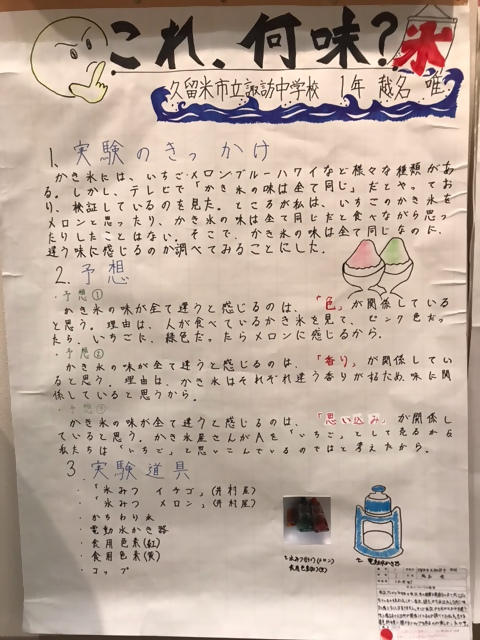 これ、何味?
氷
久留米市立諏訪中学校 1年 越名 唯
1. 実験のきっかけ
かき氷には、いちごメロンブルーハワイなど様々な種類があ
る。しかし、テレビで「かき氷の味は全て同じ」だとやってお
り、検証しているのを見た。ところが私は、いちごのかき氷を
メロンと思ったり、かき氷の味は全て同じだと食べながら思っ
たりしたことはない。そこで、かき氷の味は全て同じなのに、
違う味に感じるのか調べてみることにした。
2. 予想
・予想①
かき氷の味が全て違うと感じるのは、「色」が関係している
と思う。理由は、人が食べているかき氷を見て、ピンク色だっ
たら、いちごに、緑色だったらメロンに感じるから。
・予想②
かき氷の味が全て違うと感じるのは、「香り」が関係してい
ると思う。理由は、かき氷はそれぞれ違う香りがするため、味に関
係していると思うから。
・予想③
かき氷の味が全て違うと感じるのは、「思い込み」が関係し
ていると思う。かき氷屋さんがAを「いちご」として売るから
私たちは「いちご」と思いこんでいるのではと考えたから。
3. 実験道具
・「氷みつ イチゴ」(井村屋)
・「氷みつ メロン」(井村屋)
・かちわり氷
・電動氷かき器
・食用色素(紅)
・食用色素(黄)
・コップ